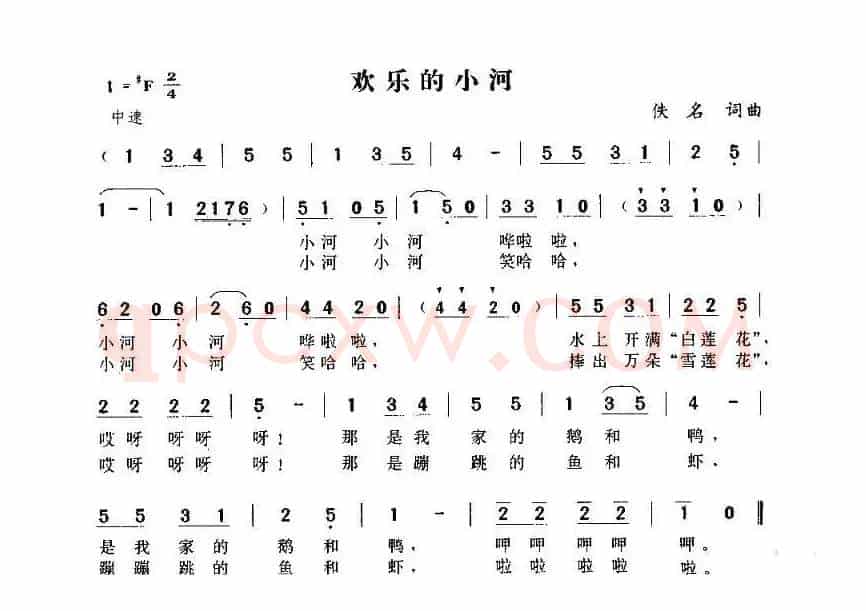 欢乐的小河
1=#F 2/4
中速
佚名 词曲
( 1 3 4 | 5 5 | 1 3 5 | 4 - | 5 5 3 1 | 2 5 |
1 - | 1 2 1 7 6 ) | 5 1 0 5 | 1 5 0 | 3 3 1 0 | ( 3 3 1 0 ) |
小河 小河 哗啦啦,
小河 小河 笑哈哈,
6 2 0 6 | 2 6 0 | 4 4 2 0 | ( 4 4 2 0 ) | 5 5 3 1 | 2 2 5 |
小河 小河 哗啦啦, 水上 开满“白莲 花”,
小河 小河 笑哈哈, 捧出 万朵“雪莲 花”,
2 2 2 2 | 5 - | 1 3 4 | 5 5 | 1 3 5 | 4 - |
哎呀 呀呀 呀! 那 是我 家的 鹅和 鸭,
哎呀 呀呀 呀! 那 是蹦 跳的 鱼和 虾、
5 5 3 1 | 2 5 | 1 - | 2 2 2 2 | 1 0 ‖
是我 家的 鹅 和 鸭, 呷呷呷呷 呷。
蹦蹦 跳的 鱼 和 虾, 啦啦啦啦 啦。
qpcxw.com